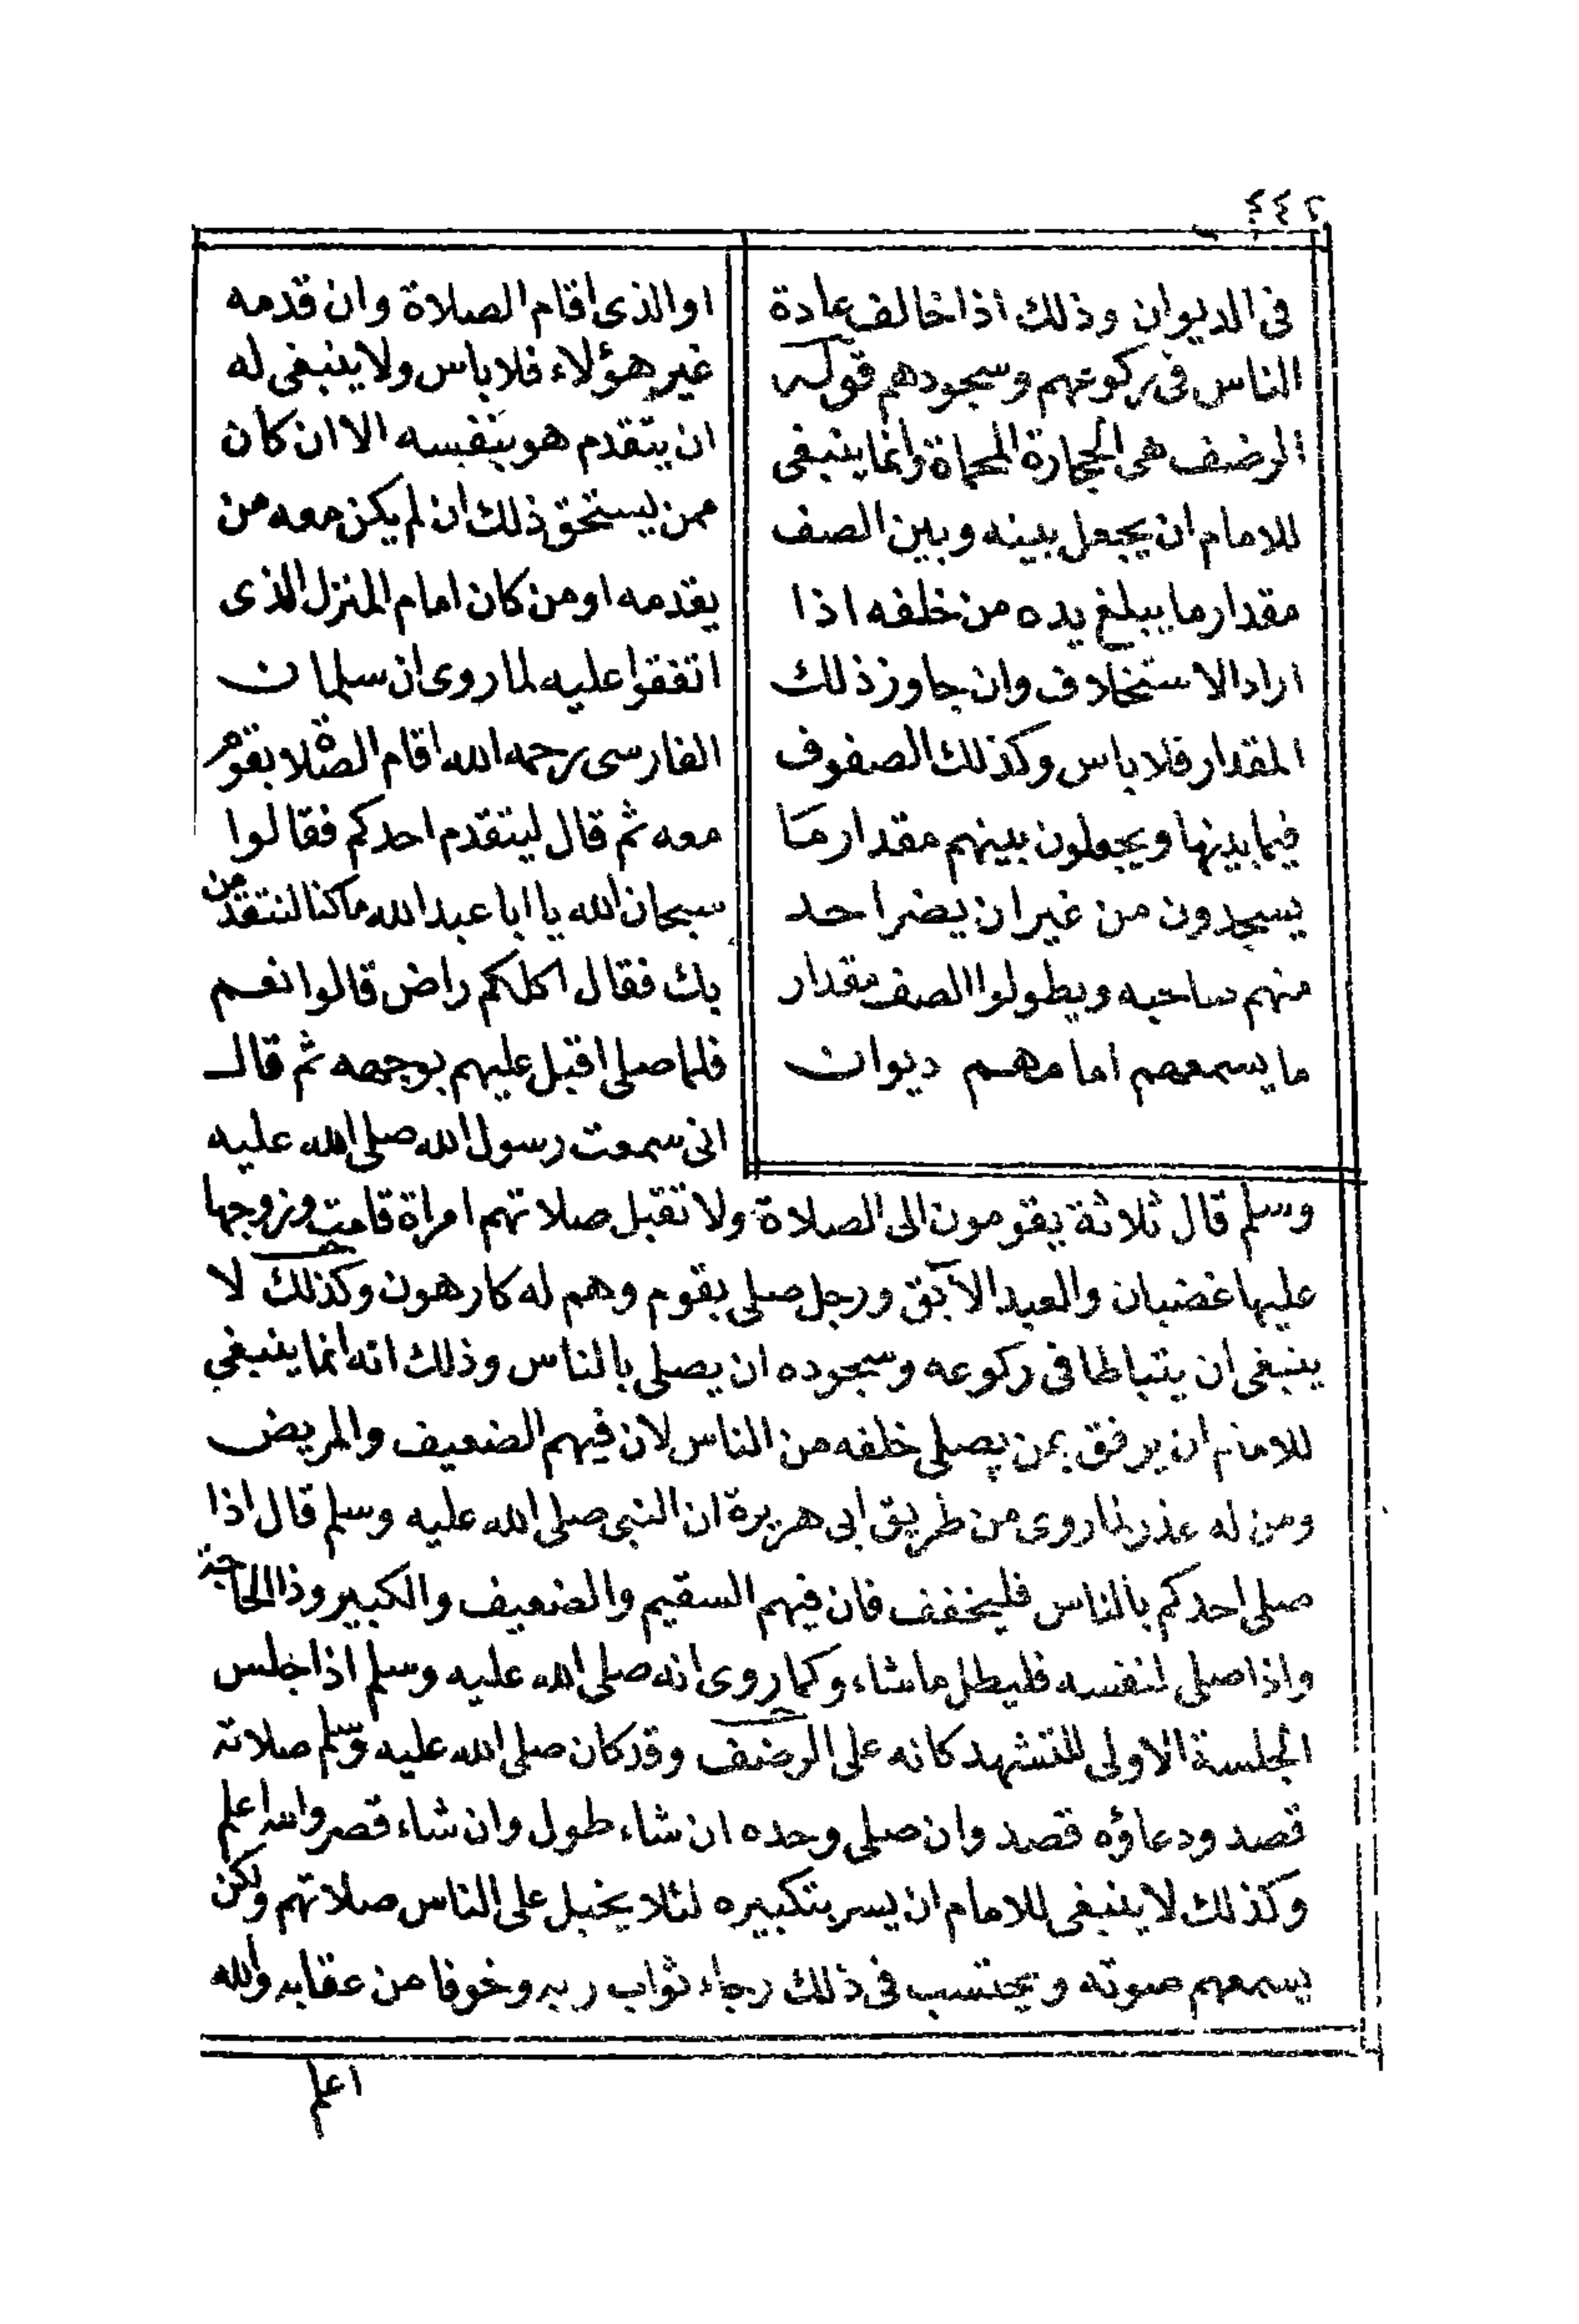 ٤٤٢
فى الديوان وذلك اذا خالف عادة
الناس فى ركوعهم وسجودهم قوله
الرضف هى الحجارة المحماة وانما ينبغى
للامام ان يجعل بينه وبين الصف
مقدار ما يبلغ يده من خلفه اذا
اراد الاستخلاف وان جاوز ذلك
المقدار فلا باس وكذلك الصفوف
فيما بينها ويجعلون بينهم مقدار ما
يسجدون من غير ان يضر احد
منهم صاحبه ويطولوا الصف مقدار
ما يسمعهم امامهم ديوان
او الذى اقام الصلاة وان قدمه
غير هؤلاء فلا باس ولا ينبغى له
ان يتقدم هو بنفسه الا ان كان
ممن يستحق ذلك ان لم يكن معه من
يقدمه او من كان امام المنزل الذى
اتفقوا عليه لما روى ان سلمان
الفارسى رحمه الله اقام الصلاة بقوم
معه ثم قال ليتقدم احدكم فقالوا
سبحان الله يا ابا عبد الله ما كنا لنتقدمن
بك فقال اكلكم راض قالوا نعم
فلما صلى اقبل عليهم بوجهه ثم قال
انى سمعت رسول الله صلى الله عليه
وسلم قال ثلاثة يقومون الى الصلاة ولا تقبل صلاتهم امراة قامت وزوجها
عليها غضبان والعبد الآبق ورجل صلى بقوم وهم له كارهون وكذلك لا
ينبغى ان يتباطا فى ركوعه وسجوده ان يصلى بالناس وذلك انه انما ينبغي
للامام ان يرفق بمن يصلى خلفه من الناس لان فيهم الضعيف والمريض
ومن له عذر لما روى من طريق ابى هريرة ان النبى صلى الله عليه وسلم قال اذا
صلى احدكم بالناس فليخفف فان فيهم السقيم والضعيف والكبير وذا الحاجة
واذا صلى لنفسه فليطل ما شاء وكما روى انه صلى الله عليه وسلم اذا جلس
الجلسة الاولى للتشهد كانه على الرضف وقد كان صلى الله عليه وسلم صلاته
قصد ودعاؤه قصد وان صلى وحده ان شاء طول وان شاء قصر والله اعلم
وكذلك لا ينبغى للامام ان يسر بتكبيره لئلا يخبل على الناس صلاتهم ولكن
يسمعهم صوته ويحتسب فى ذلك رجاء ثواب ربه وخوفا من عقابه والله
اعلم